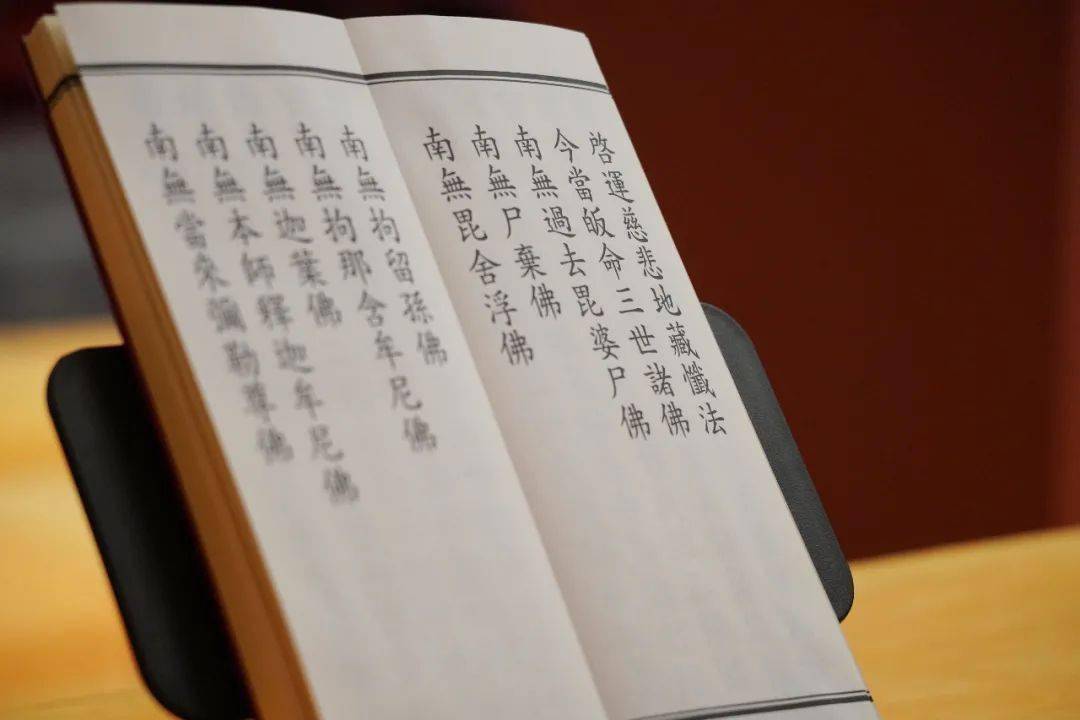 啓運慈悲地藏懺法
今當皈命三世諸佛
南無過去毘婆尸佛
南無尸棄佛
南無毘舍浮佛
南無拘留孫佛
南無拘那含牟尼佛
南無迦葉佛
南無本師釋迦牟尼佛
南無當來彌勒尊佛